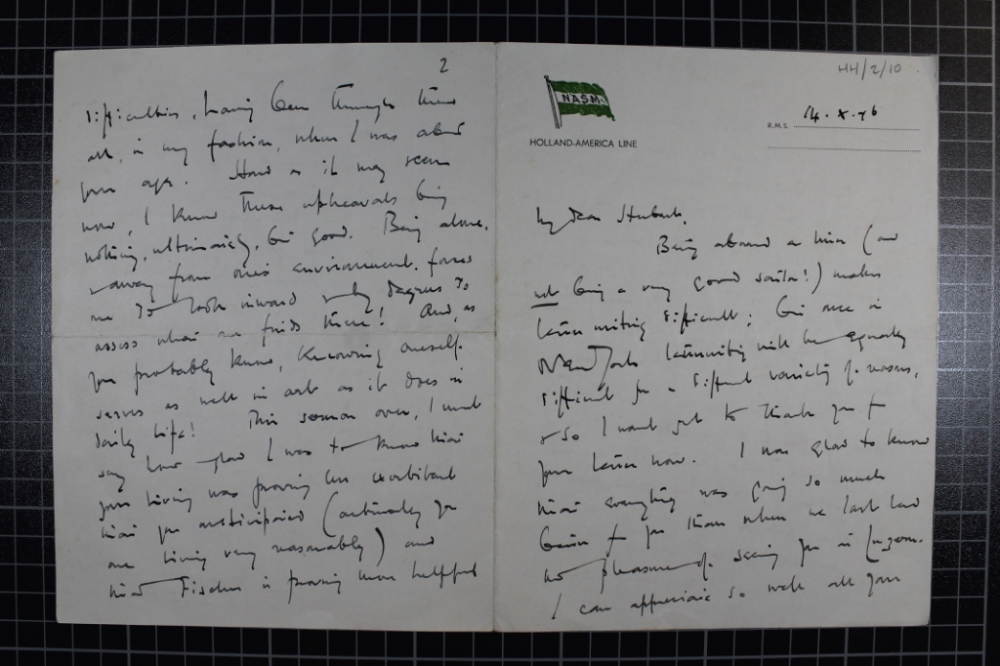 HH/2/10
NASM
HOLLAND-AMERICA LINE
R.M.S. 14.X.56
My dear Hubert,
Being aboard a liner (and
not being a very good sailor!) makes
letter writing difficult; but once in
New York letterwriting will be equally
difficult for a different variety of reasons,
& so I want just to thank you for
your letter now. I was glad to know
that everything was going so much
better for you than when we last had
the pleasure of seeing you in
I can appreciate so well all your
2
difficulties, having been through them
all, in my fashion, when I was about
your age. Hard as it may seem
now, I know these upheavals bring
nothing, ultimately, but good. Being alone,
& away from one's environment, forces
one to look inward & by degrees to
assess what one finds there! And, as
you probably know, knowing oneself
serves as well in art as it does in
daily life! This sermon over, I must
say how glad I was to know that
your living was proving less exorbitant
than you anticipated (actually you
are living very reasonably) and
that Fischer is proving more helpful